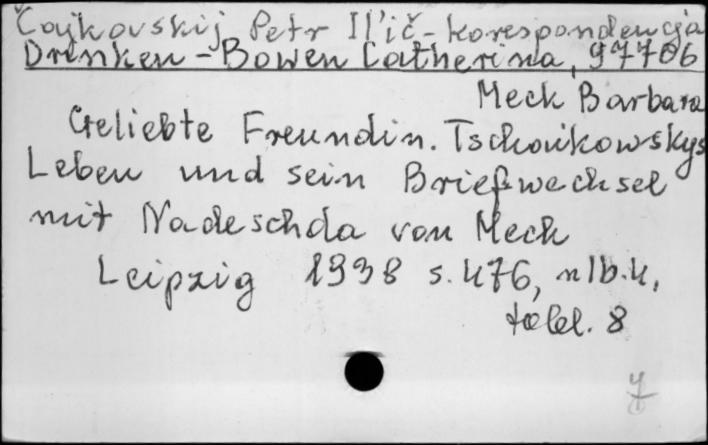 Čajkovskij Petr Il'ič - korespondencja
Drinken - Bowen Catherina, 97706
Meck Barbara
Geliebte Freundin. Tschaikowskys
Leben und sein Briefwechsel
mit Nadeschda von Meck
Leipzig 1938 s. 476, nlb. 4,
tabl. 8
7